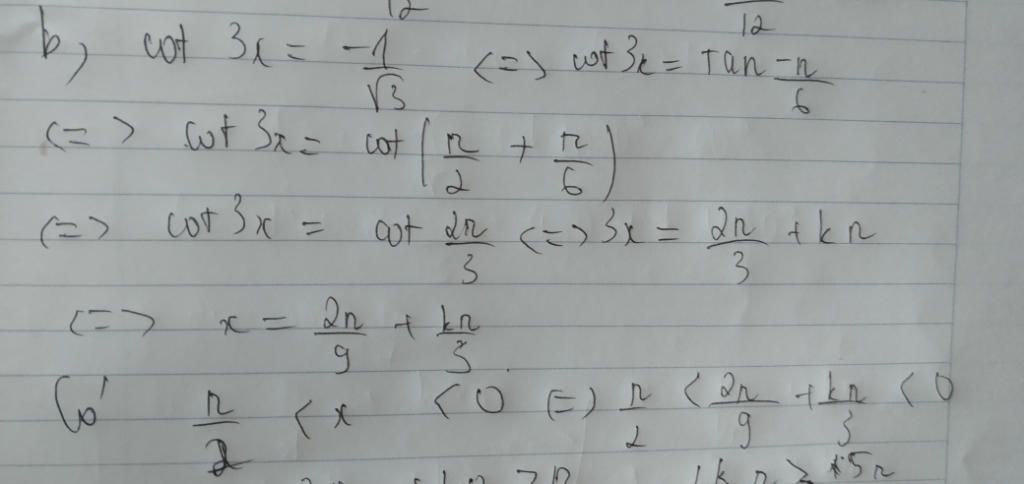 12 12
b, cot 3x = -1/√3 <=> cot 3x = Tan -π/6
<=> cot 3x = cot (π/2 + π/6)
<=> cot 3x = cot 2π/3 <=> 3x = 2π/3 + kπ
<=> x = 2π/9 + kπ/3.
Có π/2 < x < 0 <=> π/2 < 2π/9 + kπ/3 < 0